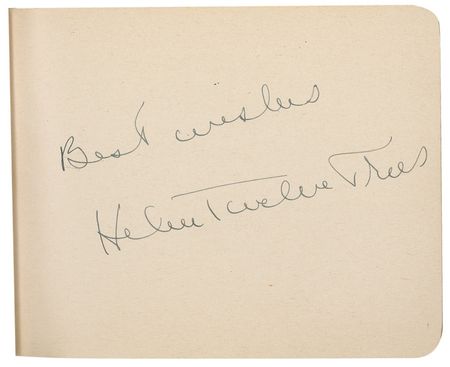 Best wishes
Helen Twelve Trees